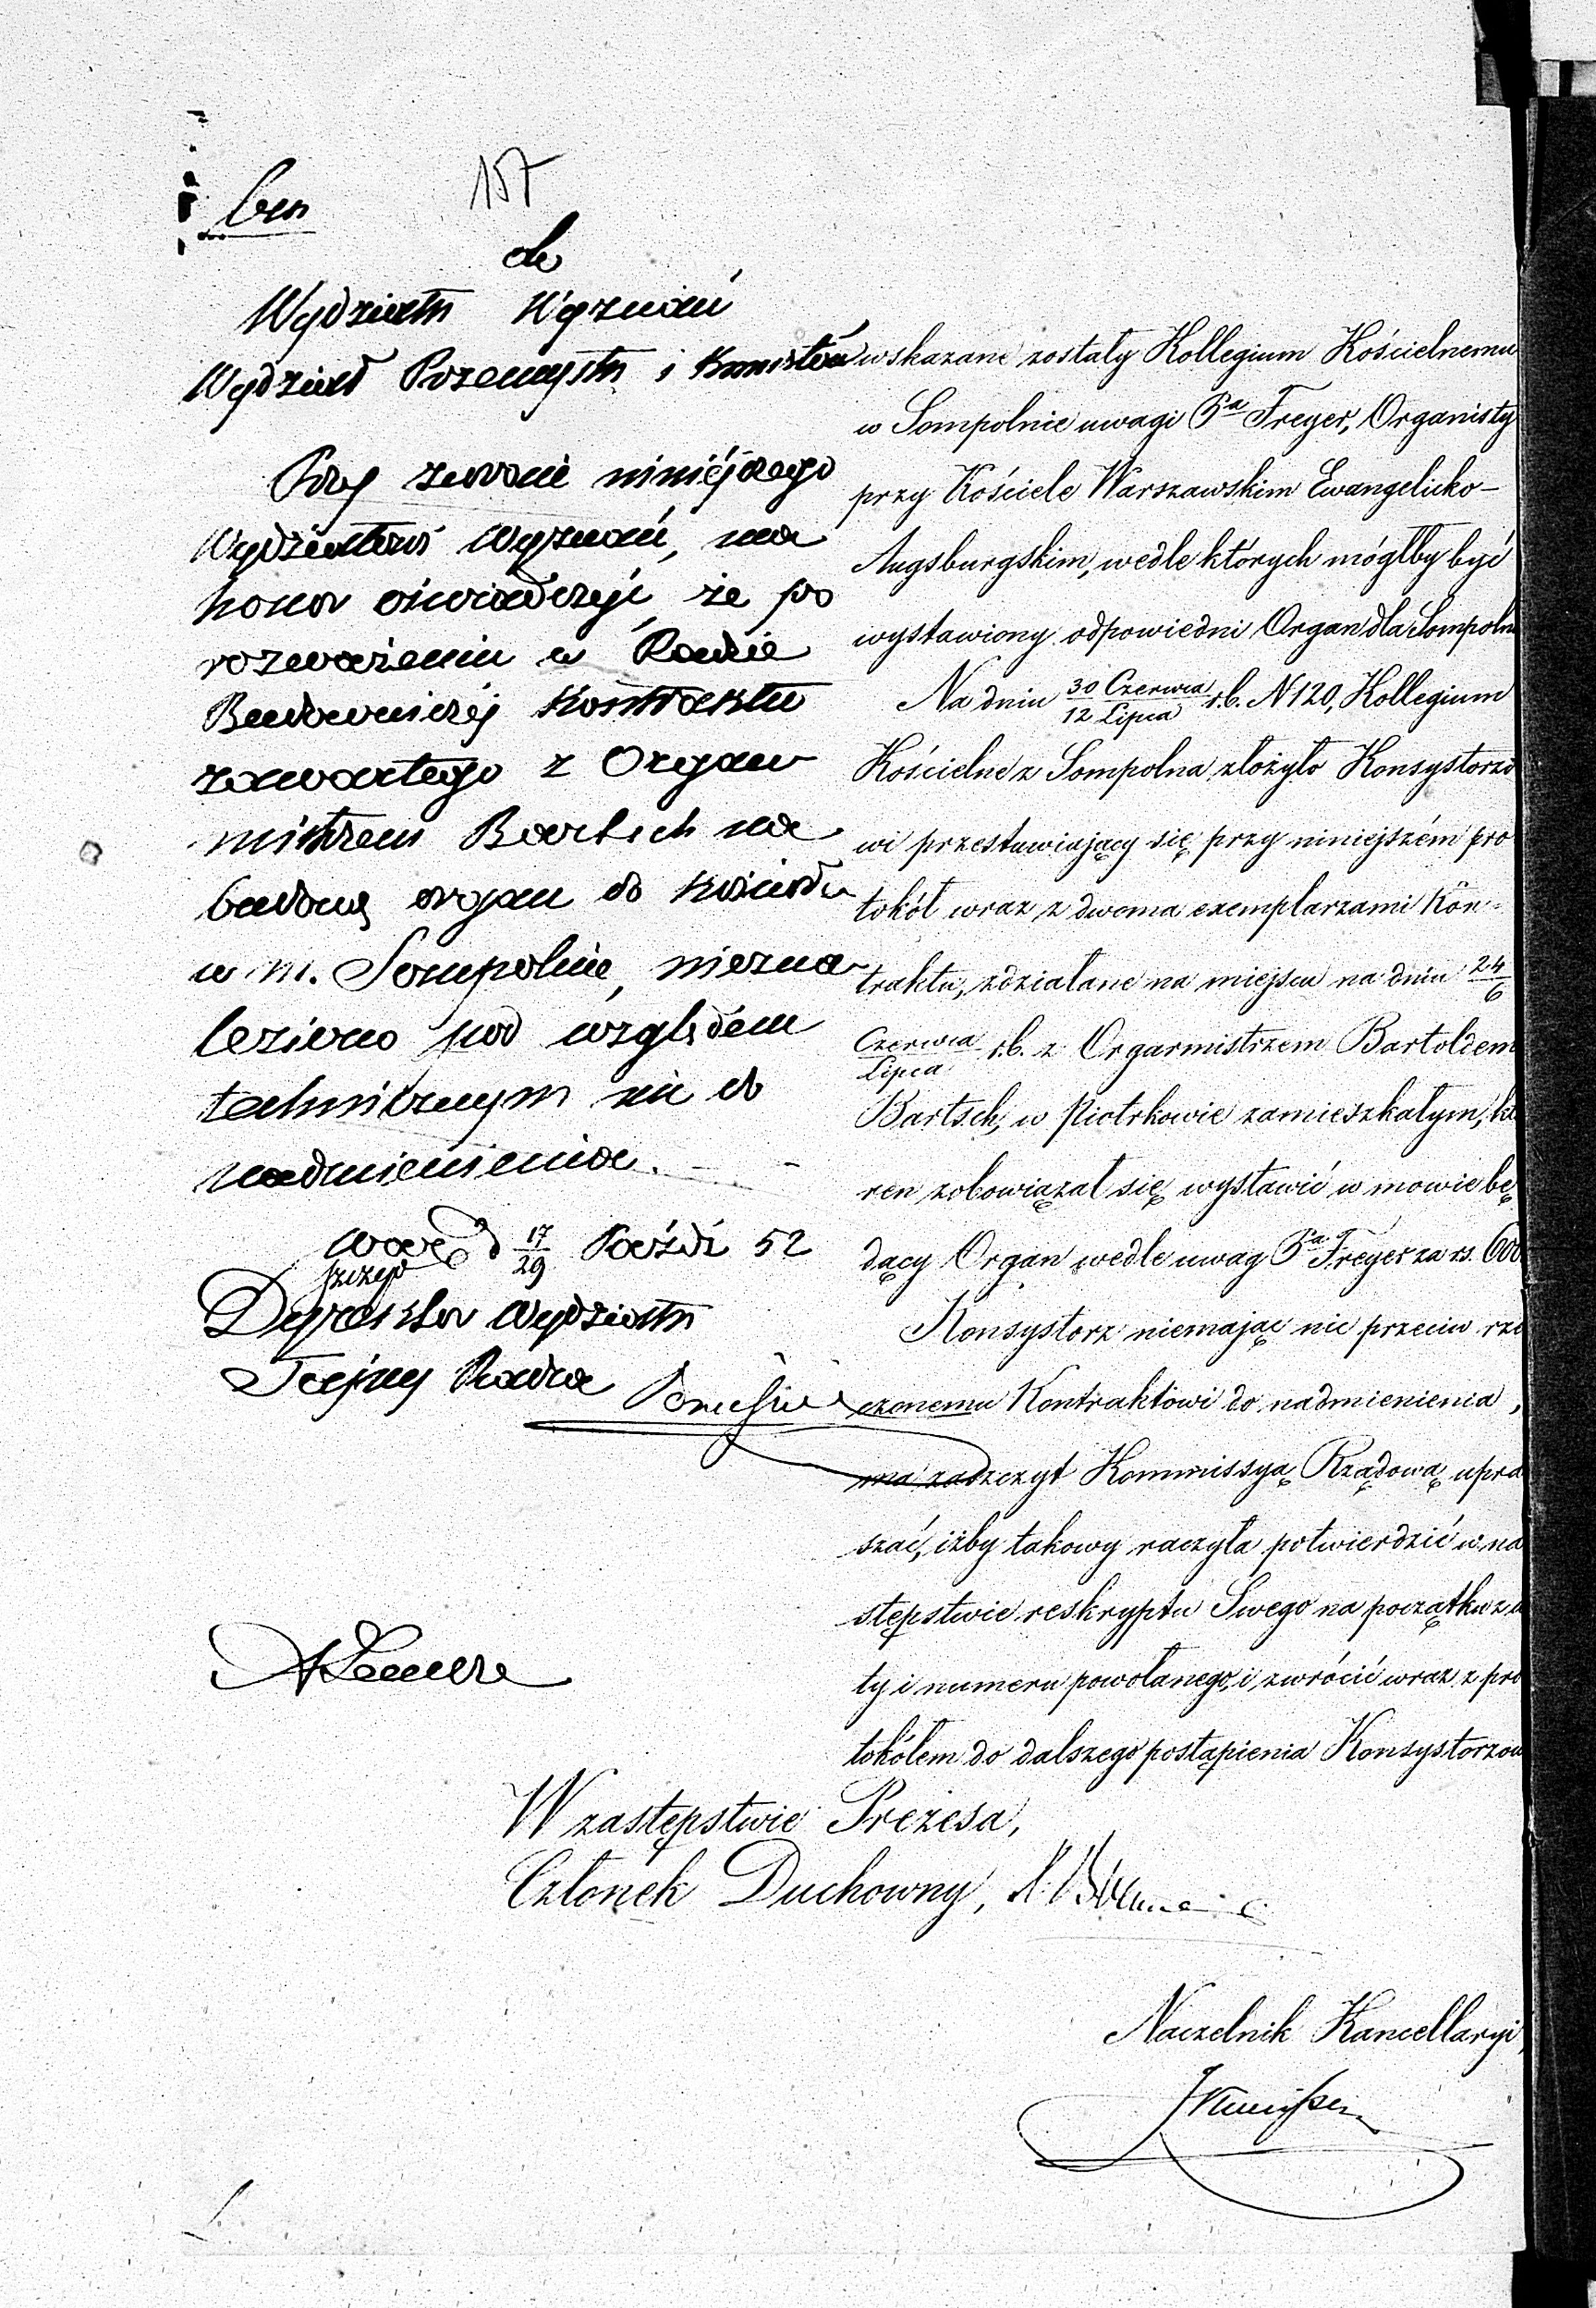 157
do
Wydziału Wyznań
Wydział Przemysłu i Kunsztów
Przy zwrocie niniejszego
Wydziałowi Wyznań, ma
honor oświadczyć, że po
rozważeniu w Radzie
Budowniczéj Kontraktu
zawartego z Organ
mistrzem Bartsch na
budowę organ do kościoła
w m. Sompolnie, niezna
leziono pod względem
technicznym nic do
nadmienienia.
d 17/29 Paźdź 52
Dyrektor Wydziału
Tajny Radca
wskazane zostały Kollegium Kościelnemu
w Sompolnie uwagi Pa Freyer, Organisty
przy Kościele Warszawskim Ewangelicko-
Augsburgskim, wedle których mógłby być
wystawiony odpowiedni Organ dla Sompoln
Na dniu 30 Czerwca/12 Lipca r.b. N 120, Kollegium
Kościelne z Sompolna złożyło Konsystorzo
wi przestawiający się przy niniejszém pro
tokół wraz z dwoma exemplarzami Kon-
traktu, zdziałane na miejscu na dniu 24/6
Czerwca/Lipca r.b. z Orgarmistrzem Bartoldem
Bartsch, w Piotrkowie zamieszkałym, kt
ren zobowiązał się wystawić w mowie bę
dący Organ wedle uwag Pa Freyer za rs. 600
Konsystorz niemając nic przeciw rze
czonemu Kontraktowi do nadmienienia,
ma zadzczyt Kommissyą Rządową upra
szać, iżby takowy raczyła potwierdzić w na
stępstwie reskryptu Swego na początku z
ty i numeru powołanego, i zwrócić wraz z pro
tokółem do dalszego postąpienia Konsystorzow
W zastępstwie Prezesa,
Członek Duchowny,
Naczelnik Kancellaryi,